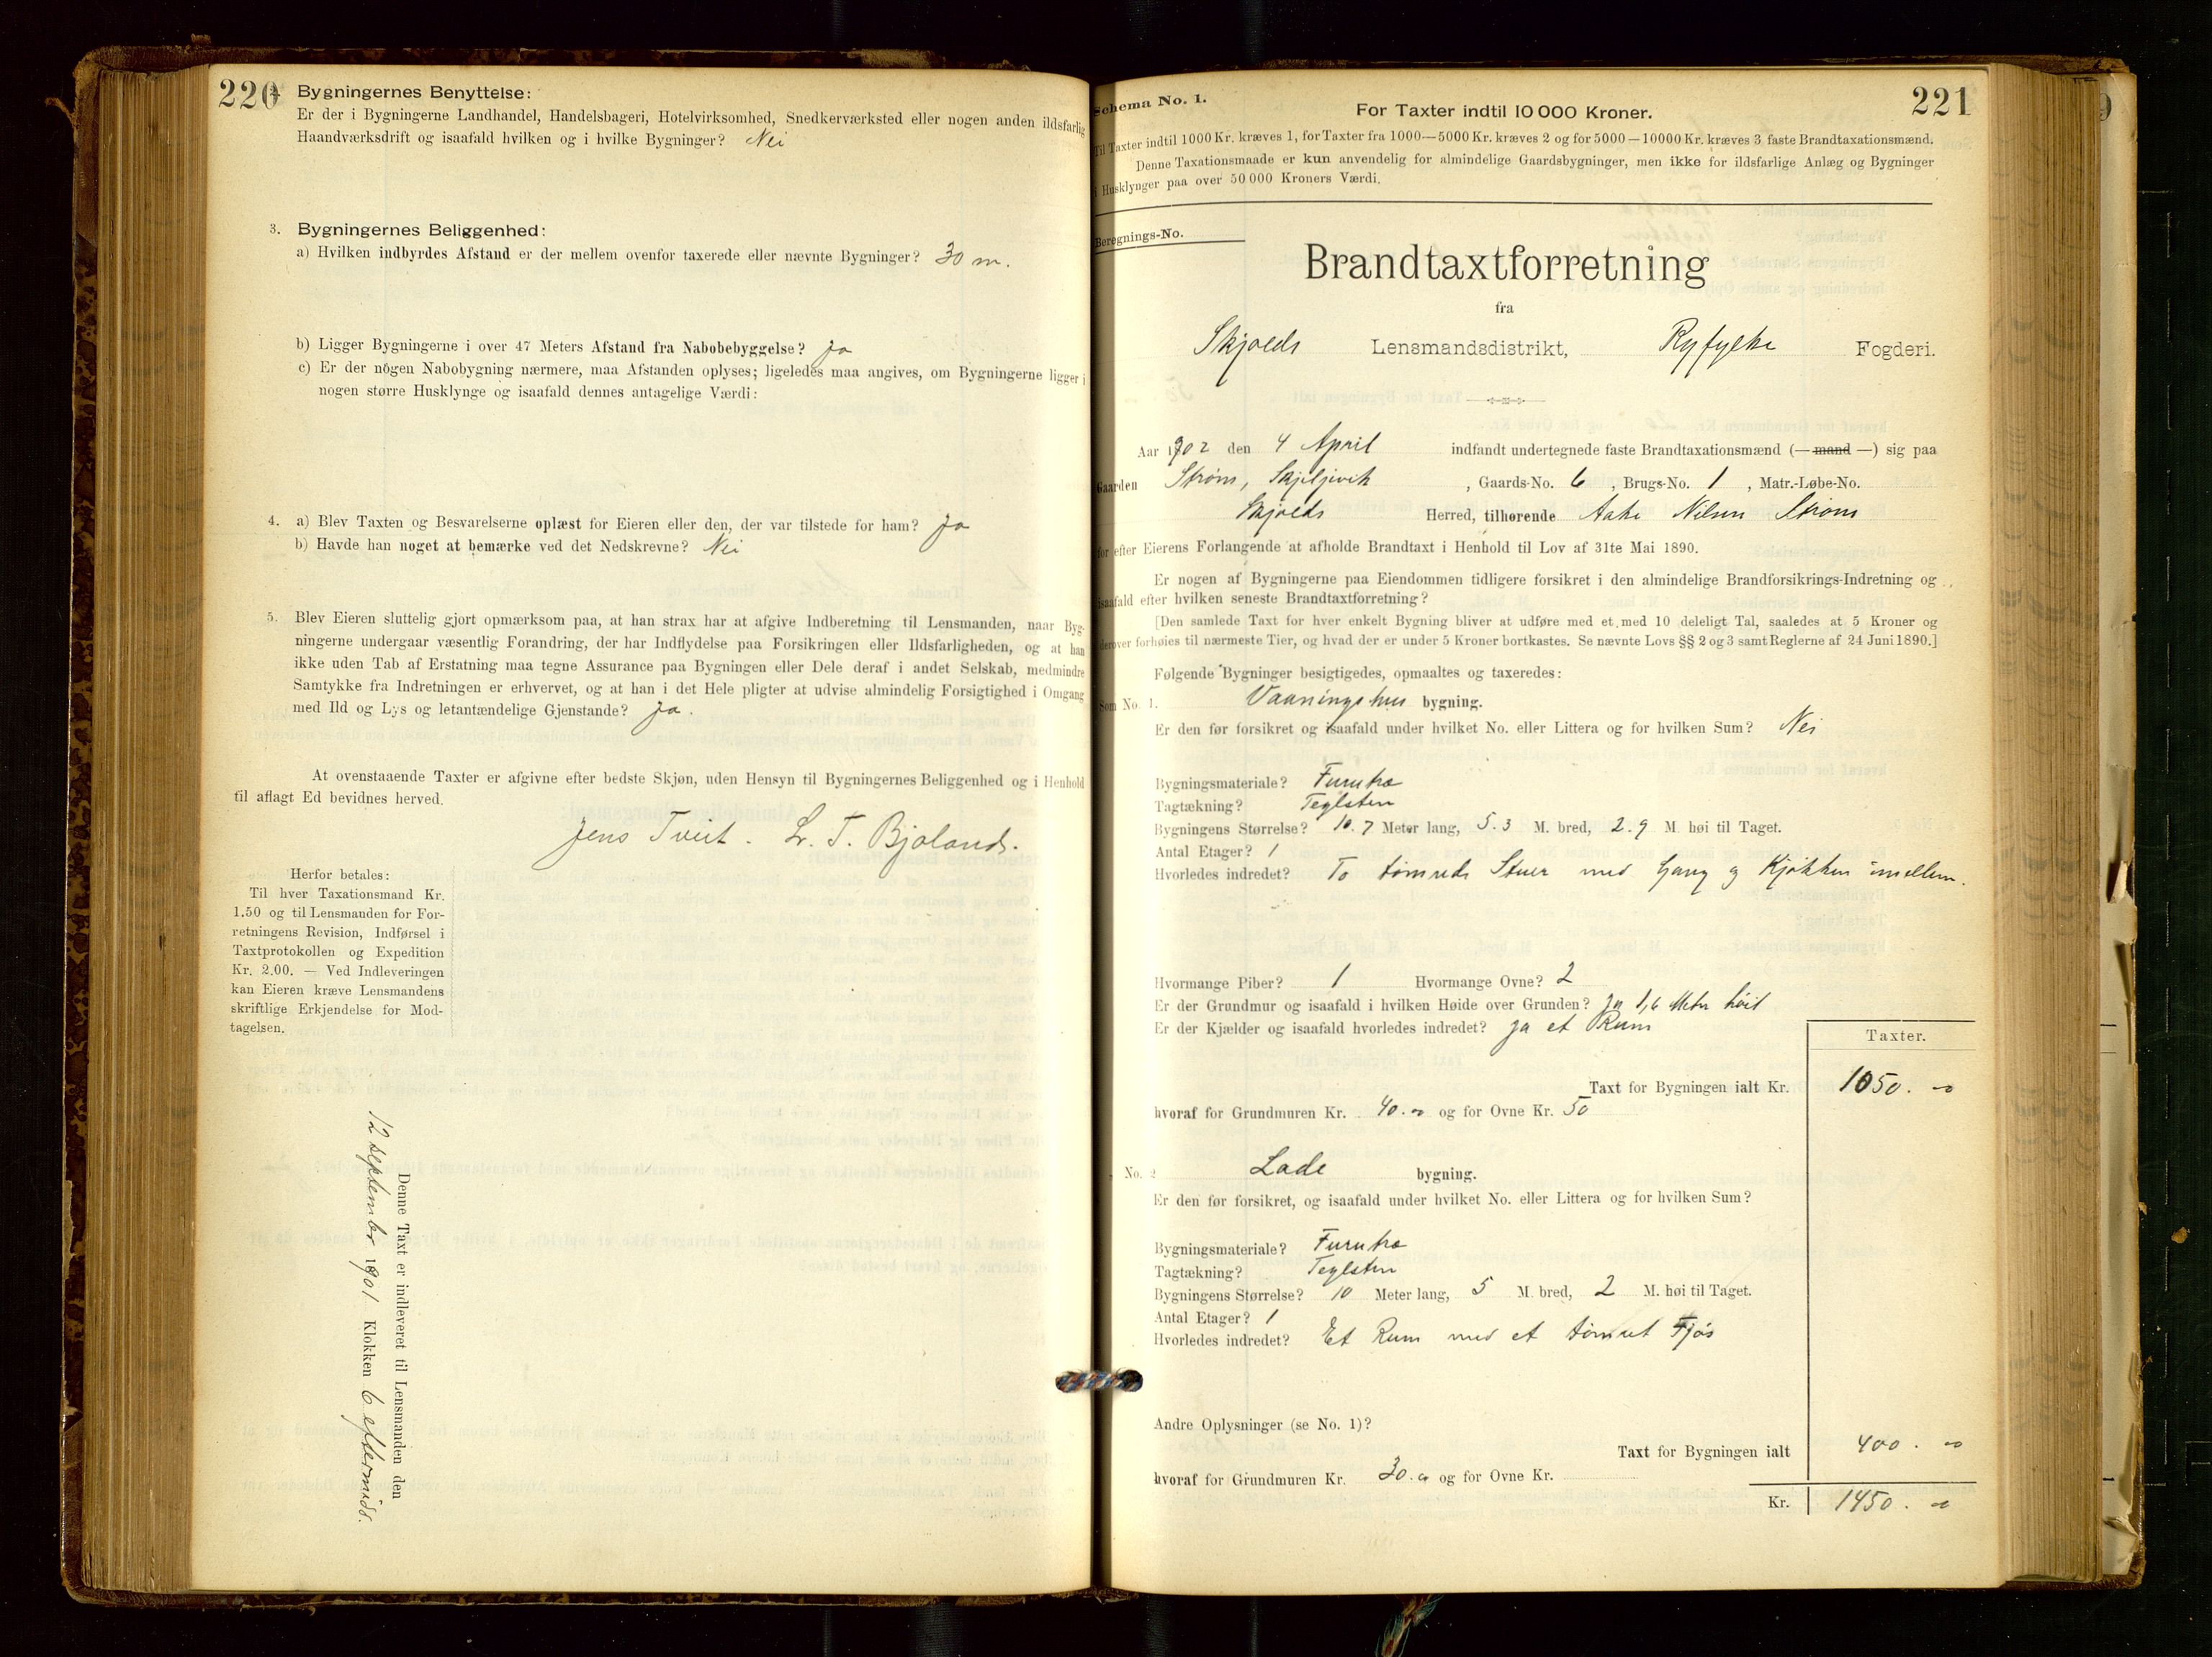 220
2. Bygningernes Benyttelse:
Er der i Bygningerne Landhandel, Handelsbageri, Hotelvirksomhed, Snedkerværksted eller nogen anden ildsfarlig
Haandværksdrift og isaafald hvilken og i hvilke Bygninger? Nei
3. Bygningernes Beliggenhed:
a) Hvilken indbyrdes Afstand er der mellem ovenfor taxerede eller nævnte Bygninger? 30 m.
b) Ligger Bygningerne i over 47 Meters Afstand fra Nabobebyggelse? Ja
c) Er der nogen Nabobygning nærmere, maa Afstanden oplyses; ligeledes maa angives, om Bygningerne ligger i
nogen større Husklynge og isaafald dennes antagelige Værdi:
4. a) Blev Taxten og Besvarelserne oplæst for Eieren eller den, der var tilstede for ham? Ja
b) Havde han noget at bemærke ved det Nedskrevne? Nei
5. Blev Eieren sluttelig gjort opmærksom paa, at han strax har at afgive Indberetning til Lensmanden, naar Byg-
ningerne undergaar væsentlig Forandring, der har Indflydelse paa Forsikringen eller Ildsfarligheden, og at han
ikke uden Tab af Erstatning maa tegne Assurance paa Bygningen eller Dele deraf i andet Selskab, medmindre
Samtykke fra Indretningen er erhvervet, og at han i det Hele pligter at udvise almindelig Forsigtighed i Omgang
med Ild og Lys og letantændelige Gjenstande? Ja.
At ovenstaaende Taxter er afgivne efter bedste Skjøn, uden Hensyn til Bygningernes Beliggenhed og i Henhold
til aflagt Ed bevidnes herved.
Jens Tveit. L. T. Bjoland.
Herfor betales:
Til hver Taxationsmand Kr.
1.50 og til Lensmanden for For-
retningens Revision, Indførsel i
Taxtprotokollen og Expedition
Kr. 2.00. — Ved Indleveringen
kan Eieren kræve Lensmandens
skriftlige Erkjendelse for Mod-
tagelsen.
Denne Taxt er indleveret til Lensmanden den
12 september 1901 Klokken 6 eftermidd.
221
Schema No. 1.
For Taxter indtil 10 000 Kroner.
Til Taxter indtil 1000 Kr. kræves 1, for Taxter fra 1000—5000 Kr. kræves 2 og for 5000—10000 Kr. kræves 3 faste Brandtaxationsmænd.
Denne Taxationsmaade er kun anvendelig for almindelige Gaardsbygninger, men ikke for ildsfarlige Anlæg og Bygninger
i Husklynger paa over 50 000 Kroners Værdi.
Beregnings-No.
Brandtaxtforretning
fra
Skjolds Lensmandsdistrikt, Ryfylke Fogderi.
Aar 1902 den 4 April indfandt undertegnede faste Brandtaxationsmænd (—mand—) sig paa
Gaarden Strøm, Skjeljevik, Gaards-No. 6, Brugs-No. 1, Matr.-Løbe-No.
Skjolds Herred, tilhørende Aake Nilsen Strøm
for efter Eierens Forlangende at afholde Brandtaxt i Henhold til Lov af 31te Mai 1890.
Er nogen af Bygningerne paa Eiendommen tidligere forsikret i den almindelige Brandforsikrings-Indretning og
isaafald efter hvilken seneste Brandtaxtforretning?
[Den samlede Taxt for hver enkelt Bygning bliver at udføre med et med 10 deleligt Tal, saaledes at 5 Kroner og
derover forhøies til nærmeste Tier, og hvad der er under 5 Kroner bortkastes. Se nævnte Lovs §§ 2 og 3 samt Reglerne af 24 Juni 1890.]
Følgende Bygninger besigtigedes, opmaaltes og taxeredes:
Som No. 1. Vaaningshus bygning.
Er den før forsikret og isaafald under hvilket No. eller Littera og for hvilken Sum? Nei
Bygningsmateriale? Furutræ
Tagtækning? Teglsten
Bygningens Størrelse? 10.7 Meter lang, 5.3 M. bred, 2.9 M. høi til Taget.
Antal Etager? 1
Hvorledes indredet? To tømrede Stuer med Gang og Kjøkken imellem.
Hvormange Piber? 1 Hvormange Ovne? 2
Er der Grundmur og isaafald i hvilken Høide over Grunden? Ja 1,6 Meter høit
Er der Kjælder og isaafald hvorledes indredet? Ja et Rum
Taxter.
Taxt for Bygningen ialt Kr. 1050.
hvoraf for Grundmuren Kr. 40. og for Ovne Kr. 50
No. 2 Lade bygning.
Er den før forsikret, og isaafald under hvilket No. eller Littera og for hvilken Sum?
Bygningsmateriale? Furutræ
Tagtækning? Teglsten
Bygningens Størrelse? 10 Meter lang, 5 M. bred, 2 M. høi til Taget.
Antal Etager? 1
Hvorledes indredet? Et Rum med et tømret Fjøs
Andre Oplysninger (se No. 1)?
Taxt for Bygningen ialt 400.
hvoraf for Grundmuren Kr. 30. og for Ovne Kr.
Kr. 1450.